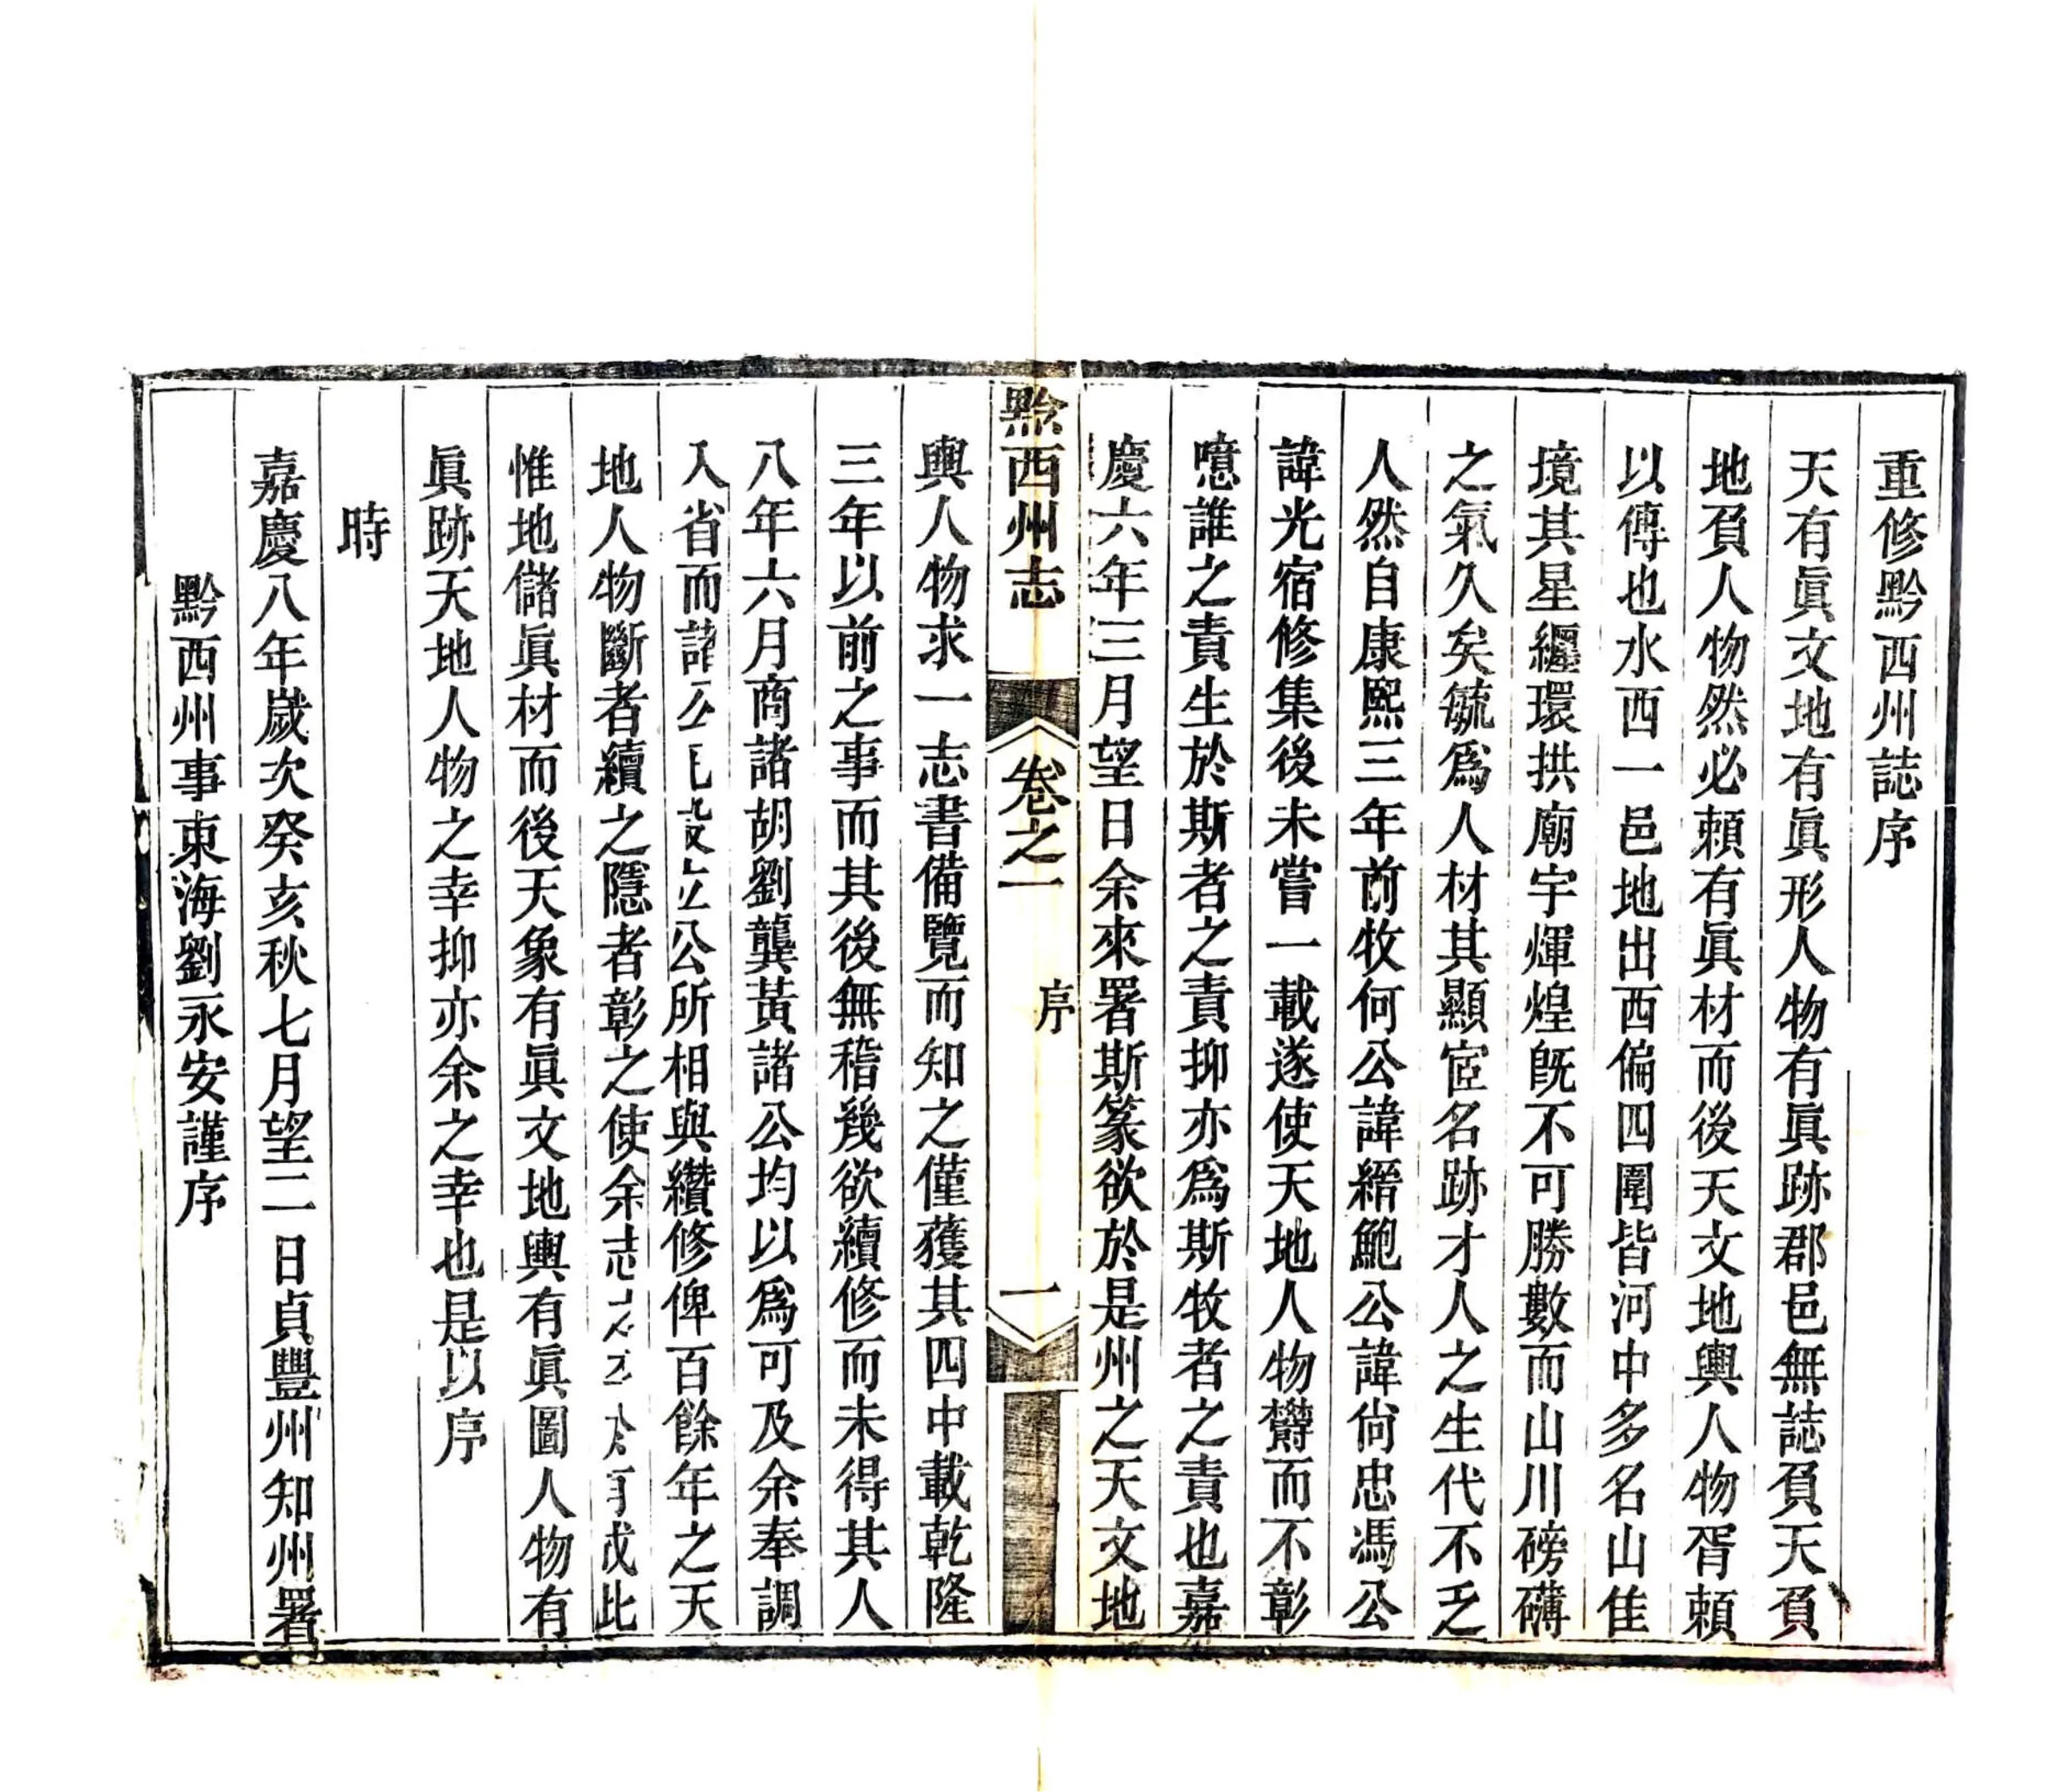 重修黔西州誌序
天有眞文地有眞形人物有眞跡郡邑無誌負天負
地負人物然必賴有眞材而後天文地輿人物胥賴
以傳也水西一邑地出西偏四圍皆河中多名山佳
境其星纏環拱廟宇煇煌旣不可勝數而山川磅礴
之氣久矣毓爲人材其顯宦名跡才人之生代不乏
人然自康熙三年前牧何公諱縉鮑公諱尙忠馮公
諱光宿修集後未嘗一載遂使天地人物欝而不彰
噫誰之責生於斯者之責抑亦爲斯牧者之責也嘉
慶六年三月望日余來署斯篆欲於是州之天文地
黔西州志 卷之一 序 一
輿人物求一志書備覽而知之僅獲其四中載乾隆
三年以前之事而其後無稽幾欲續修而未得其人
八年六月商諸胡劉龔黃諸公均以爲可及余奉調
入省而諸公設立公所相與纘修俾百餘年之天
地人物斷者續之隱者彰之使余志有成此
惟地儲眞材而後天象有眞文地輿有眞圖人物有
眞跡天地人物之幸抑亦余之幸也是以序
時
嘉慶八年歲次癸亥秋七月望二日貞豐州知州署
黔西州事東海劉永安謹序